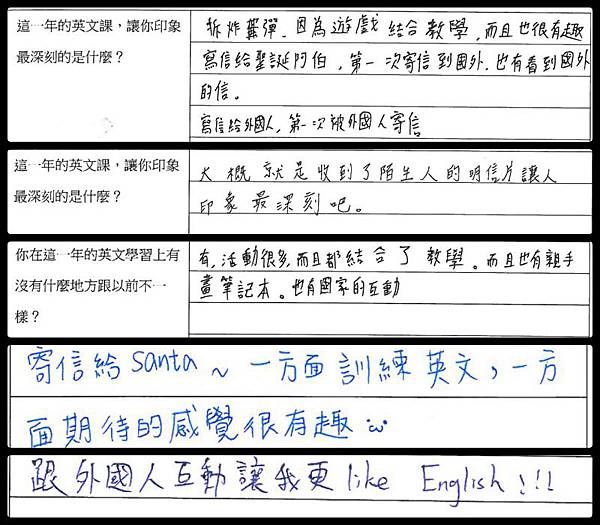 這一年的英文課，讓你印象
最深刻的是什麼？
拆炸彈，因為遊戲結合教學，而且也很有趣
寫信給聖誕阿伯，第一次寄信到國外，也有看到國外
的信。
寫信給外國人，第一次被外國人寄信
這一年的英文課，讓你印象
最深刻的是什麼？
大概就是收到了陌生人的明信片讓人
印象最深刻吧。
你在這一年的英文學習上有
沒有什麼地方跟以前不一
樣？
有，活動很多，而且都結合了教學。而且也有親手
畫筆記本。也有國家的互動
寄信給Santa～一方面訓練英文，一方
面期待的感覺很有趣
跟外國人互動讓我更like English!!!